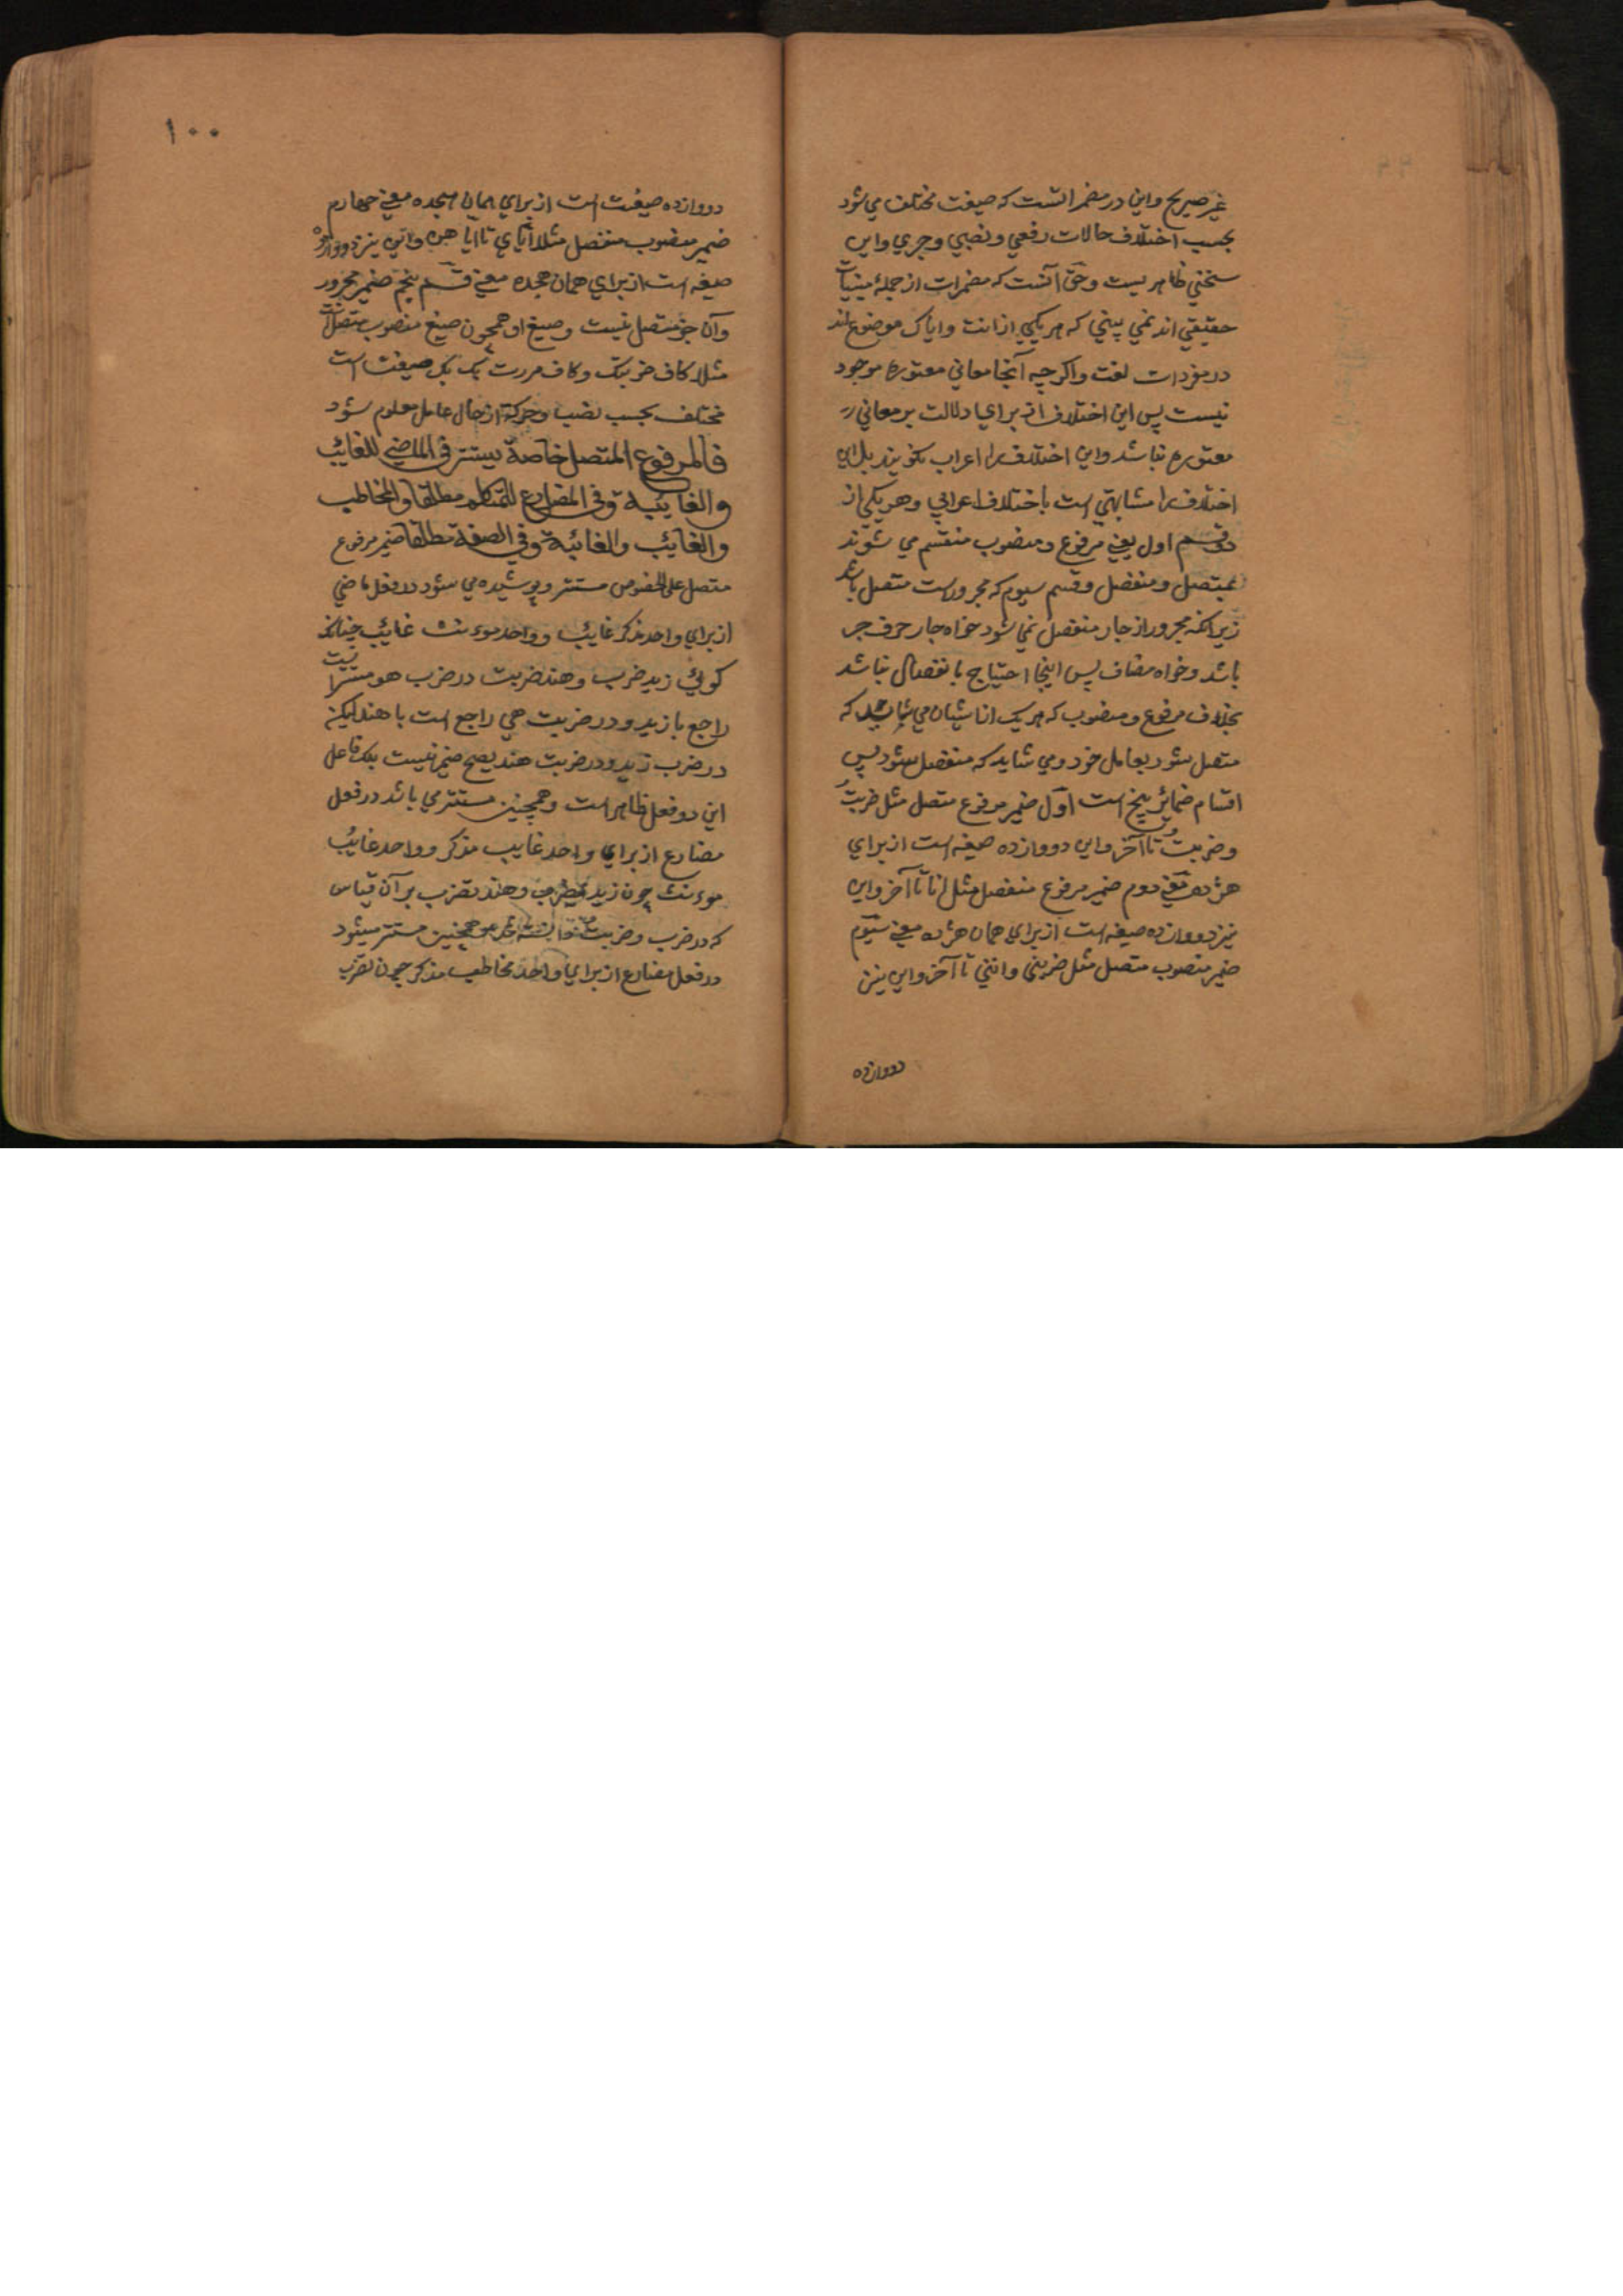 غیر صریح و این در مضمراتست که صیغت مختلف می شود
بحسب اختلاف حالات رفعی و نصبی و جری و این
سخنی ظاهریست و حق آنست که مضمرات از جملهٔ مبنیات
حقیقی اند نمی بینی که هر یکی از انت و ایاک موضوع اند
در مفردات لغت و اکرچه آنجا معانی معتوره موجود
نیست پس این اختلاف از برای دلالت بر معانی
معتوره نباشد و این اختلاف را اعراب نکویند بل این
اختلاف را مشابهتی است باختلاف اعرابی و هر یکی از
دو قسم اول یعنی مرفوع و منصوب منقسم می شوند
بمتصل و منفصل و قسم سیوم که مجرورست متصل باشد
زیراکه مجرور از جار منفصل نمی شود خواه جار حرف جر
باشد و خواه مضاف پس اینجا احتیاج بانفصال نباشد
بخلاف مرفوع و منصوب که هر یک از ایشان می شاید که
متصل شود بعامل خود و می شاید که منفصل شود پس
اقسام ضمائر پنج است اول ضمیر مرفوع متصل مثل ضربتُ
و ضربتُ تا آخر و این دووازده صیغه است از برای
هژده معنی دوم ضمیر مرفوع منفصل مثل انا تا آخر و این
نیز دووازده صیغه است از برای همان هژده معنی سیوم
ضمیر منصوب متصل مثل ضربنی و اننی تا آخر و این نیز
دووازده
۱۰۰
دووازده صیغت است از برای همان هجده معنی چهارم
ضمیر منصوب منفصل مثلا ایای تا ایاهن و این نیز دووازده
صیغه است از برای همان هجده معنی قسم پنجم ضمیر مجرور
و آن جز متصل نیست و صیغ او همچون صیغ منصوب متصل است
مثلا کاف ضربتک و کاف مررت بک یک صیغت است
مختلف بحسب نصب و جر که از حال عامل معلوم شود
فالمرفوع المتصل خاصة یستتر فی الماضی للغائب
والغائبة وفی المضارع للمتکلم مطلقا والمخاطب
والغائب والغائبة وفی الصفة مطلقا ضمیر مرفوع
متصل علی الخصوص مستتر و پوشیده می شود در فعل ماضی
از برای واحد مذکر غائب و واحد موءنث غائب چنانکه
کویی زید ضرب و هند ضربت در ضرب هو مستتر است
راجع با زید و در ضربت هی راجع است با هند لیکن
در ضرب زید و در ضربت هند هیچ ضمیر نیست بلکه فاعل
این دو فعل ظاهر است و همچنین مستتر می باشد در فعل
مضارع از برای واحد غایب مذکر و واحد غایب
موءنث چون زید یضرب و هند تضرب بر آن قیاس
که در ضرب و ضربت دانسته شد همچنین مستتر میشود
در فعل مضارع از برای واحد مخاطب مذکر چون تضرب